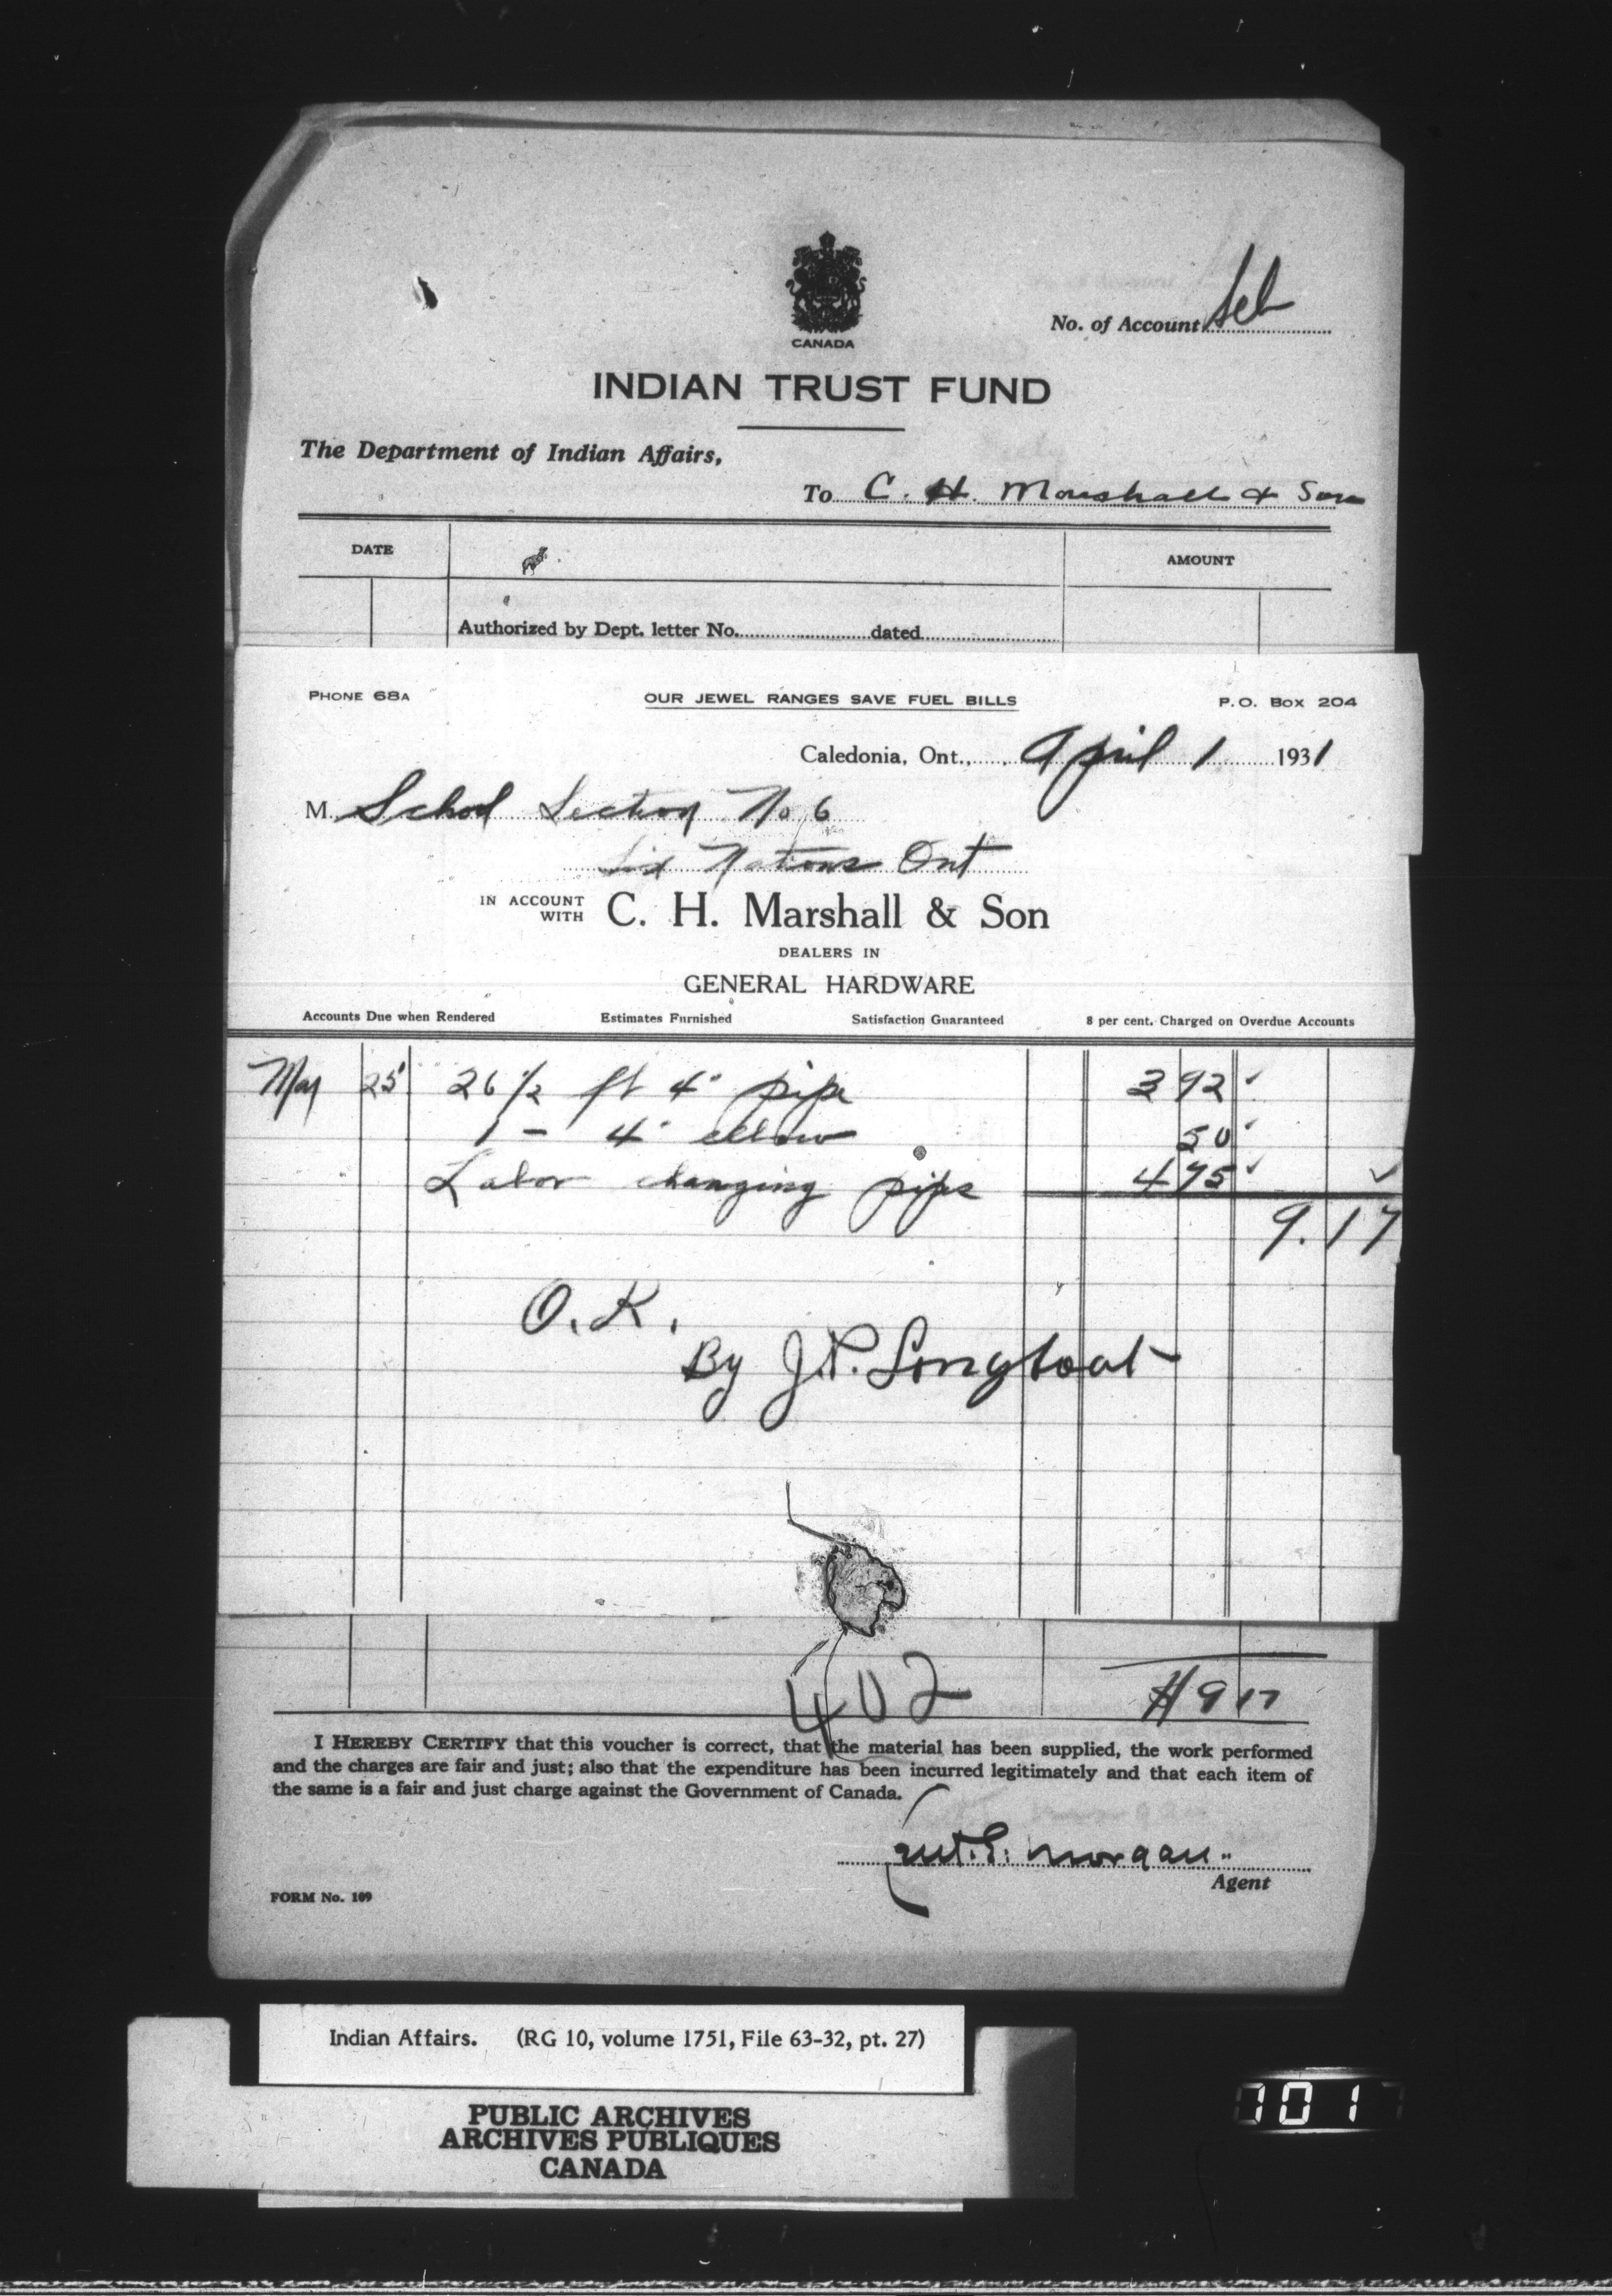 No. of Account Sch
CANADA
INDIAN TRUST FUND
The Department of Indian Affairs,
To C. H. Marshall & Son
DATE AMOUNT
Authorized by Dept. letter No. dated
PHONE 68A OUR JEWEL RANGES SAVE FUEL BILLS P.O. BOX 204
Caledonia, Ont., April 1 1931
M. School Section No 6
Six Nations Ont
IN ACCOUNT WITH C. H. Marshall & Son
DEALERS IN
GENERAL HARDWARE
Accounts Due when Rendered Estimates Furnished Satisfaction Guaranteed 8 per cent. Charged on Overdue Accounts
Mar 25 26 1/2 ft 4" pipe 3 92 ✓
1 - 4" elbow 50 ✓
Labor changing pipe 4 75 ✓ ✓
9.17
O.K.
By J.P. Longboat
402 $9 17
I HEREBY CERTIFY that this voucher is correct, that the material has been supplied, the work performed
and the charges are fair and just; also that the expenditure has been incurred legitimately and that each item of
the same is a fair and just charge against the Government of Canada.
Morgan
Agent
FORM No. 109
Indian Affairs. (RG 10, volume 1751, File 63-32, pt. 27)
PUBLIC ARCHIVES
ARCHIVES PUBLIQUES
CANADA
101